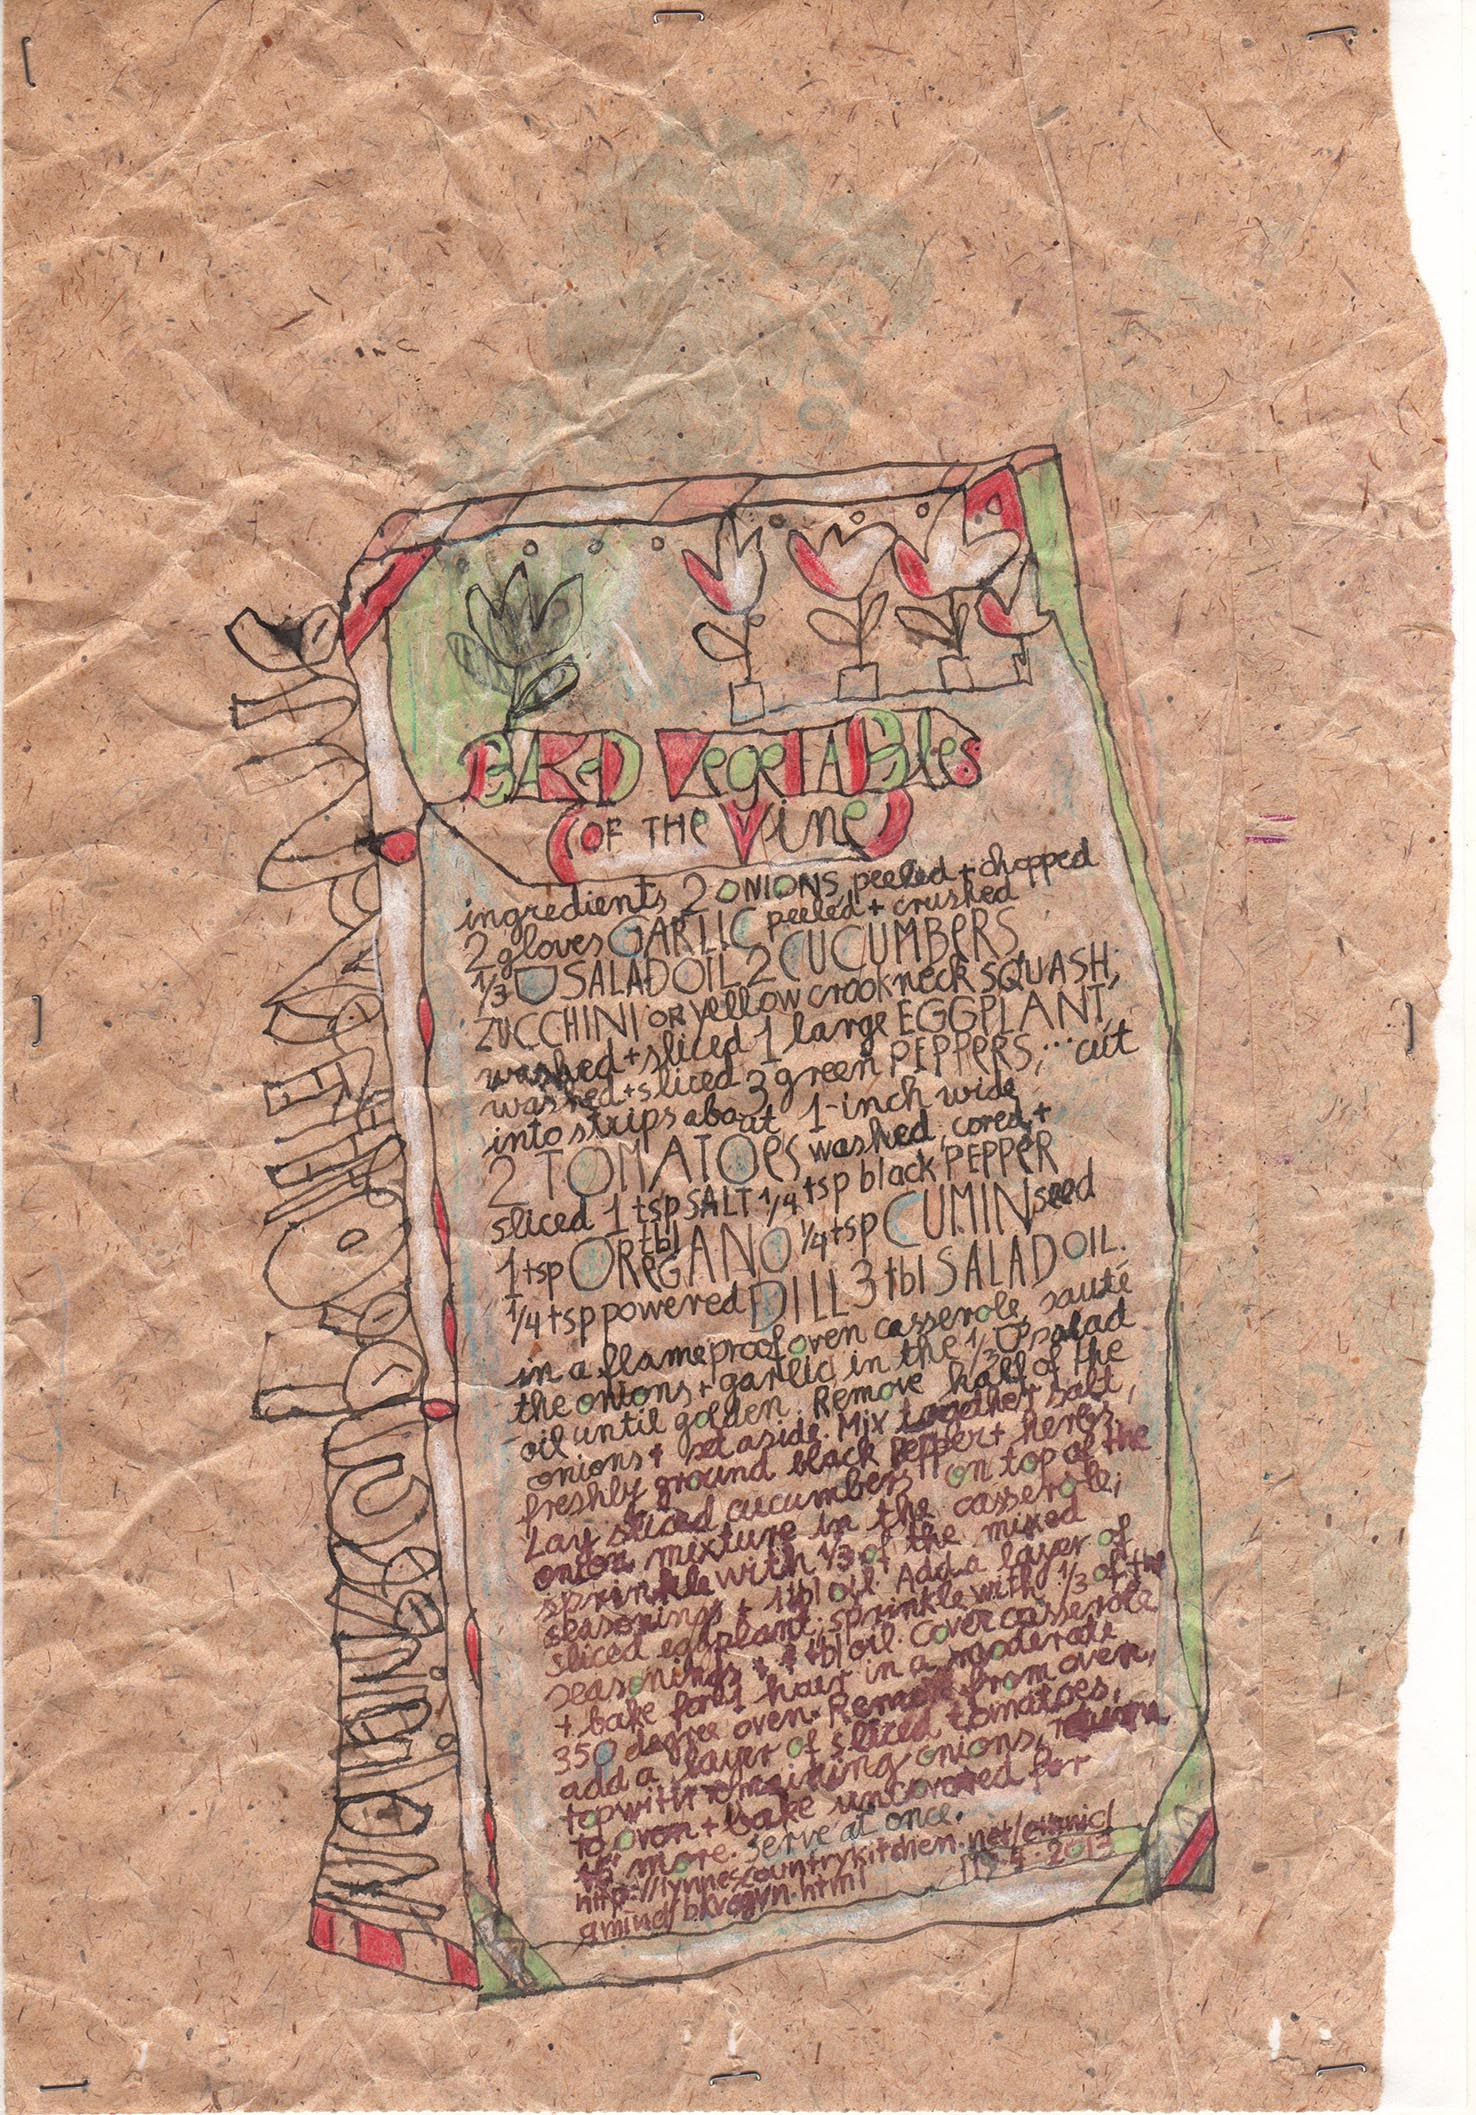 BAKED VegeTABles
(OF THe Vine)
ingredients 2 ONIONS peeled + chopped
2 gloves GARLIC peeled + crushed
1/3 SALAD OIL 2 CUCUMBeRS,
ZUCCHINI OR yellow crookneck SQUASH;
washed + sliced 1 large EGGPLANT,
washed + sliced 3 green PEPPERS, ... cut
into strips about 1-inch wide
2 TOMATOeS washed, cored +
sliced 1 tsp SALT 1/4 tsp black PEPPeR
1 tsp OReGANO 1/4 tsp CUMIN seed
tbl
1/4 tsp powered DILL 3 tbl SALAD OIL.
in a flameproof oven casserole, sauté
the onions + garlic in the 1/3 salad
oil until golden. Remove half of the
onions + set aside. Mix together salt,
freshly ground black pepper + herbs.
Lay sliced cucumbers on top of the
onion mixture in the casserole;
sprinkle with 1/3 of the mixed
seasonings + 1 tbl oil. Add a layer of
sliced eggplant; sprinkle with 1/3 of the
seasonings + tbl oil. Cover casserole
+ bake for 1 hour in a moderate
350 degree oven. Remove from oven,
add a layer of sliced tomatoes,
top with remaining onions, return
to oven + bake uncovered for
15' more. serve at once.
http://lynnescountrykitchen.net/ethnic/
amind/bkvegvn.html
4. 2013